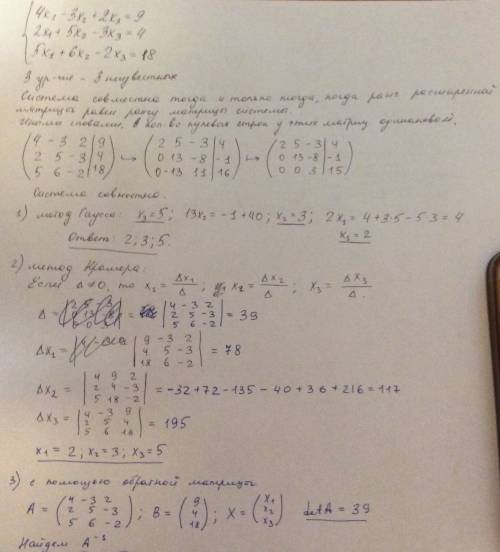 4x₁ - 3x₂ + 2x₃ = 9
2x₁ + 5x₂ - 3x₃ = 4
5x₁ + 6x₂ - 2x₃ = 18
3 ур-ие - 3 неизвестных
Система совместна тогда и только тогда, когда ранг расширенной
матрицы равен рангу матрицы системы.
Иными словами, кол-во нулевых строк у этих матриц одинаковой.
(4 -3 2 | 9; 2 5 -3 | 4; 5 6 -2 | 18) ↦ (2 5 -3 | 4; 0 13 -8 | -1; 0 -13 11 | 16) ↦ (2 5 -3 | 4; 0 13 -8 | -1; 0 0 3 | 15)
Система совместна.
1) метод Гаусса: x₃ = 5; 13x₂ = -1 + 40; x₂ = 3; 2x₁ = 4 + 3·5 - 5·3 = 4
x₁ = 2
Ответ: 2; 3; 5.
2) метод Крамера:
Если Δ ≠ 0, то x₁ = Δx₁/Δ; x₂ = Δx₂/Δ; x₃ = Δx₃/Δ.
Δ = |4 -3 2; 2 5 -3; 5 6 -2| = 39
Δx₁ = |9 -3 2; 4 5 -3; 18 6 -2| = 78
Δx₂ = |4 9 2; 2 4 -3; 5 18 -2| = -32 + 72 - 135 - 40 + 36 + 216 = 117
Δx₃ = |4 -3 9; 2 5 4; 5 6 18| = 195
x₁ = 2; x₂ = 3; x₃ = 5
3) с помощью обратной матрицы
A = (4 -3 2; 2 5 -3; 5 6 -2); B = (9; 4; 18); X = (x₁; x₂; x₃) detA = 39
Найдем A⁻¹